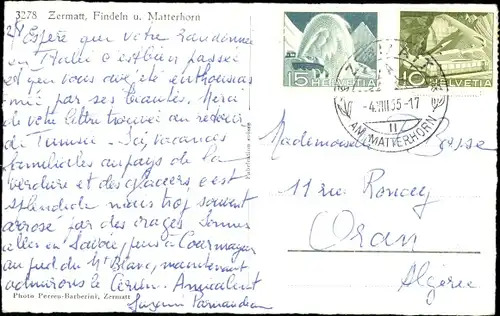 3278 Zermatt, Findeln u. Matterhorn
Espère que votre randonnée
en Italie c'est bien passée
et que vous avez été enthousias
mée par ses beautés. Merci
de votre lettre trouvée au retour
de Tunisie. Ici, vacances
familiales au pays de la
verdure et des glaciers, c'est
splendide mais trop souvent
arrosé par des orages. Sommes
allés en Savoie, puis à Courmayeur
au pied du Mt Blanc, maintenant
admirons le Cervin. Amicalement
Photo Perren-Barberini, Zermatt
15 HELVETIA
10 HELVETIA
ZERMATT
-4.VIII.55-17
11
AM MATTERHORN
Mademoiselle
11 rue Rovigo
Oran
Algérie